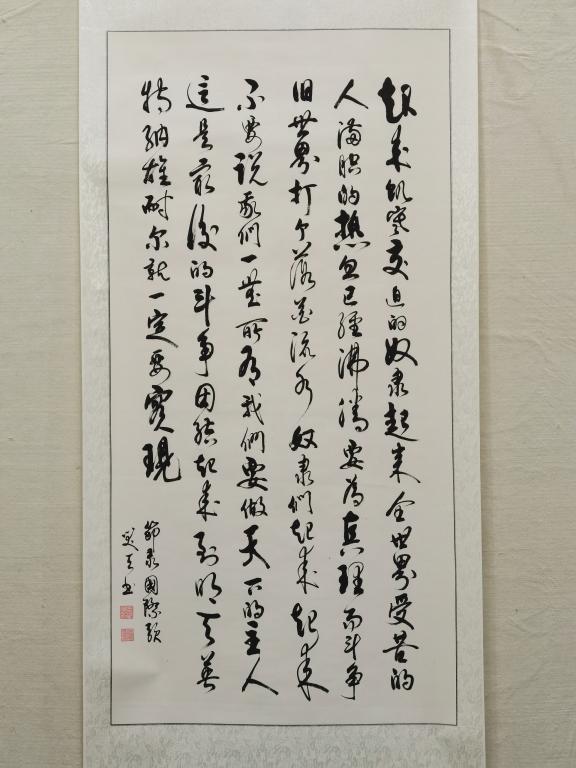 起来飢寒交迫的奴隶起来全世界受苦的
人满腔的热血已经沸腾要为真理而斗争
旧世界打个落花流水奴隶们起来起来
不要说我們一無所有我們要做天下的主人
這是最後的斗争团结起来到明天英
特纳雄耐尔就一定要實現
節录國際歌
天书